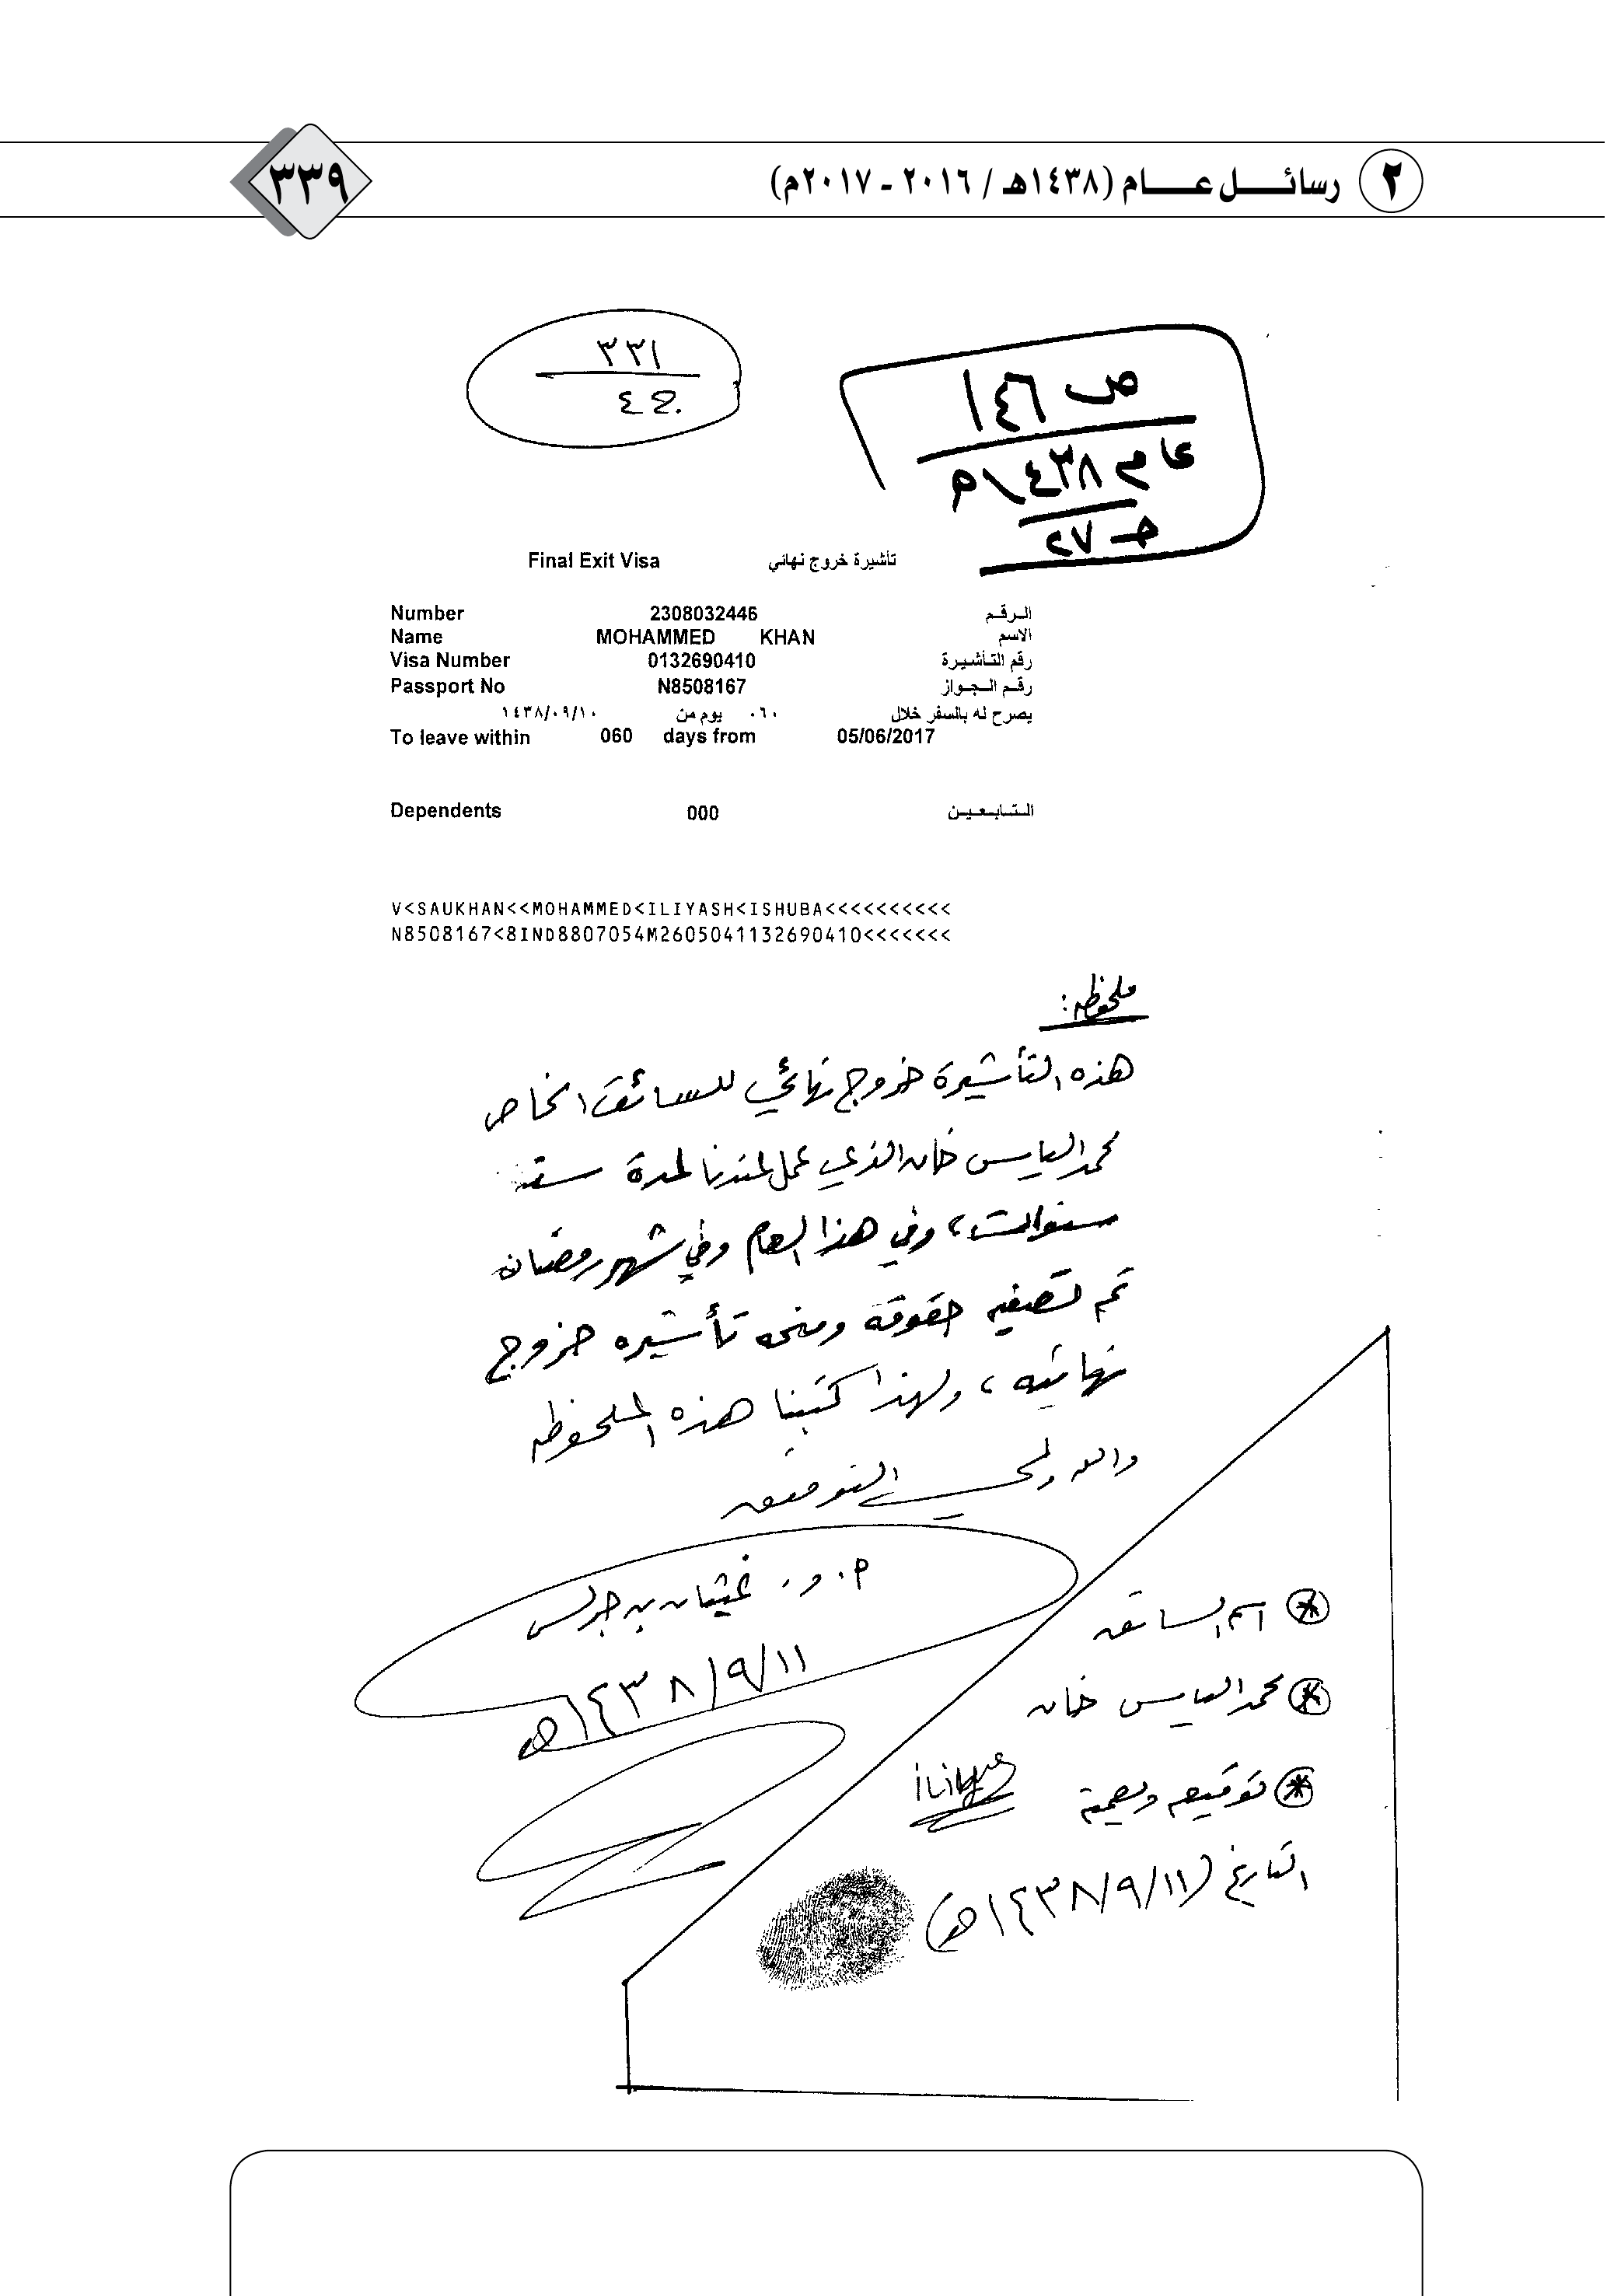 ٢ رسائل عام (١٤٣٨هـ / ٢٠١٦ - ٢٠١٧م)
٣٣٩
٣٣١
ج٤
ص ١٤٦
عام ١٤٣٨هـ
ج ٢٧
Final Exit Visa تأشيرة خروج نهائي
Number 2308032446 الرقم
Name MOHAMMED KHAN الاسم
Visa Number 0132690410 رقم التأشيرة
Passport No N8508167 رقم الجواز
يصرح له بالسفر خلال ٠٦٠ يوم من ١٤٣٨/٠٩/١٠
To leave within 060 days from 05/06/2017
Dependents 000 التابعين
V<SAUKHAN<<MOHAMMED<ILIYASH<ISHUBA<<<<<<<<<<
N8508167<8IND8807054M2605041132690410<<<<<<<
ملحوظه:
هذه التأشيرة خروج نهائي للسائق الخاص
محمد الياس خان الذي عمل لمدة ستة
سنوات، وفي هذا العام وفي شهر رمضان
تم تصفيه حقوقه ومنحه تأشيره خروج
نهائيه، ولهذا كتبنا هذه الملحوظه
والله ولي التوفيق
غيثان بن جريس
١٤٣٨/٩/١١هـ
اسم السائق
محمد الياس خان
توقيعه وبصمة
التاريخ (١٤٣٨/٩/١١هـ)